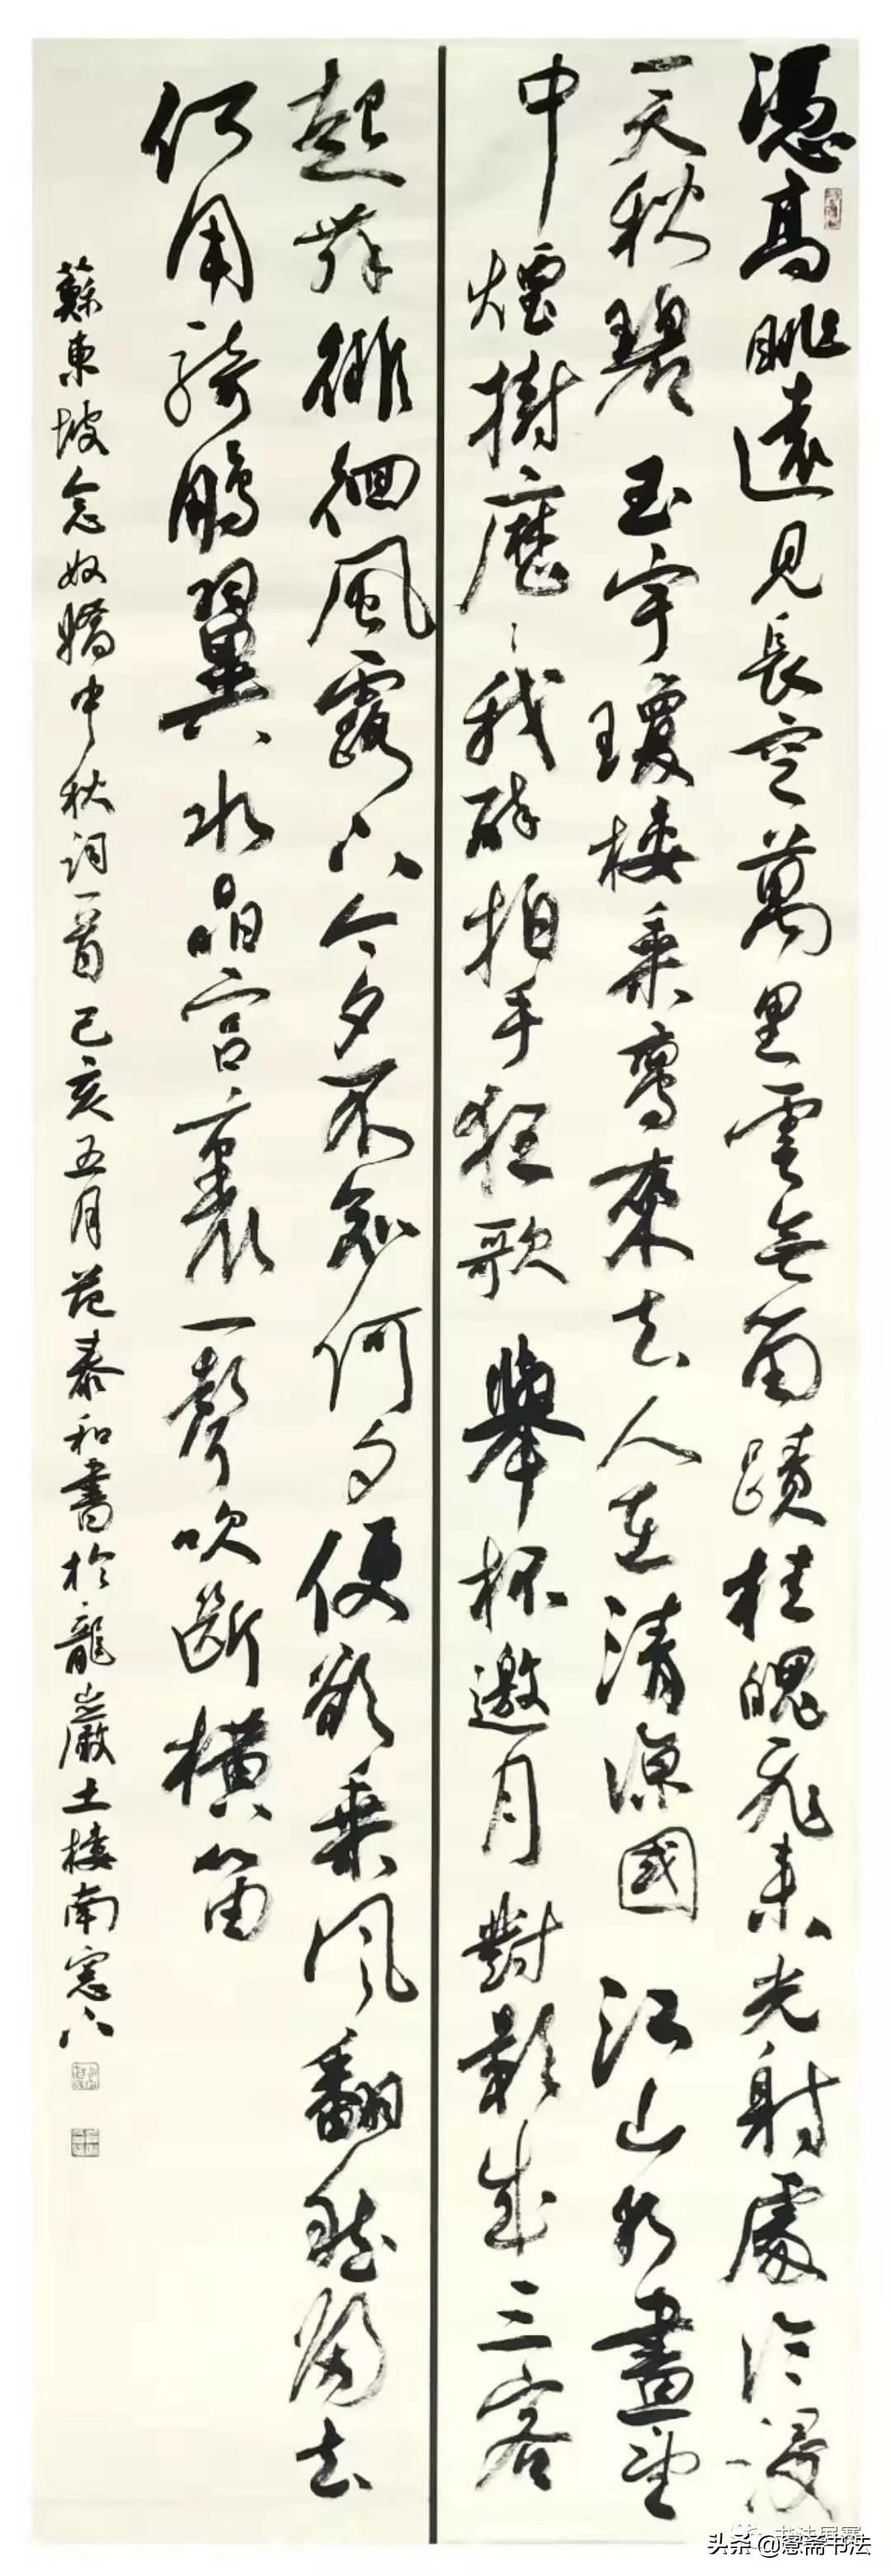 憑高眺遠見長空萬里雲無留蹟桂魄飛來光射處冷浸
一天秋碧玉宇瓊樓乘鸞來去人在清涼國江山如畫望
中煙樹歷〻我醉拍手狂歌舉杯邀月對影成三客
起舞徘徊風露下今夕不知何夕便欲乘風翻然歸去
何用騎鵬翼水晶宮裏一聲吹斷橫笛
蘇東坡念奴嬌中秋詞一首己亥五月范泰和書於龍巖土樓南窓下
头条@愙斋书法